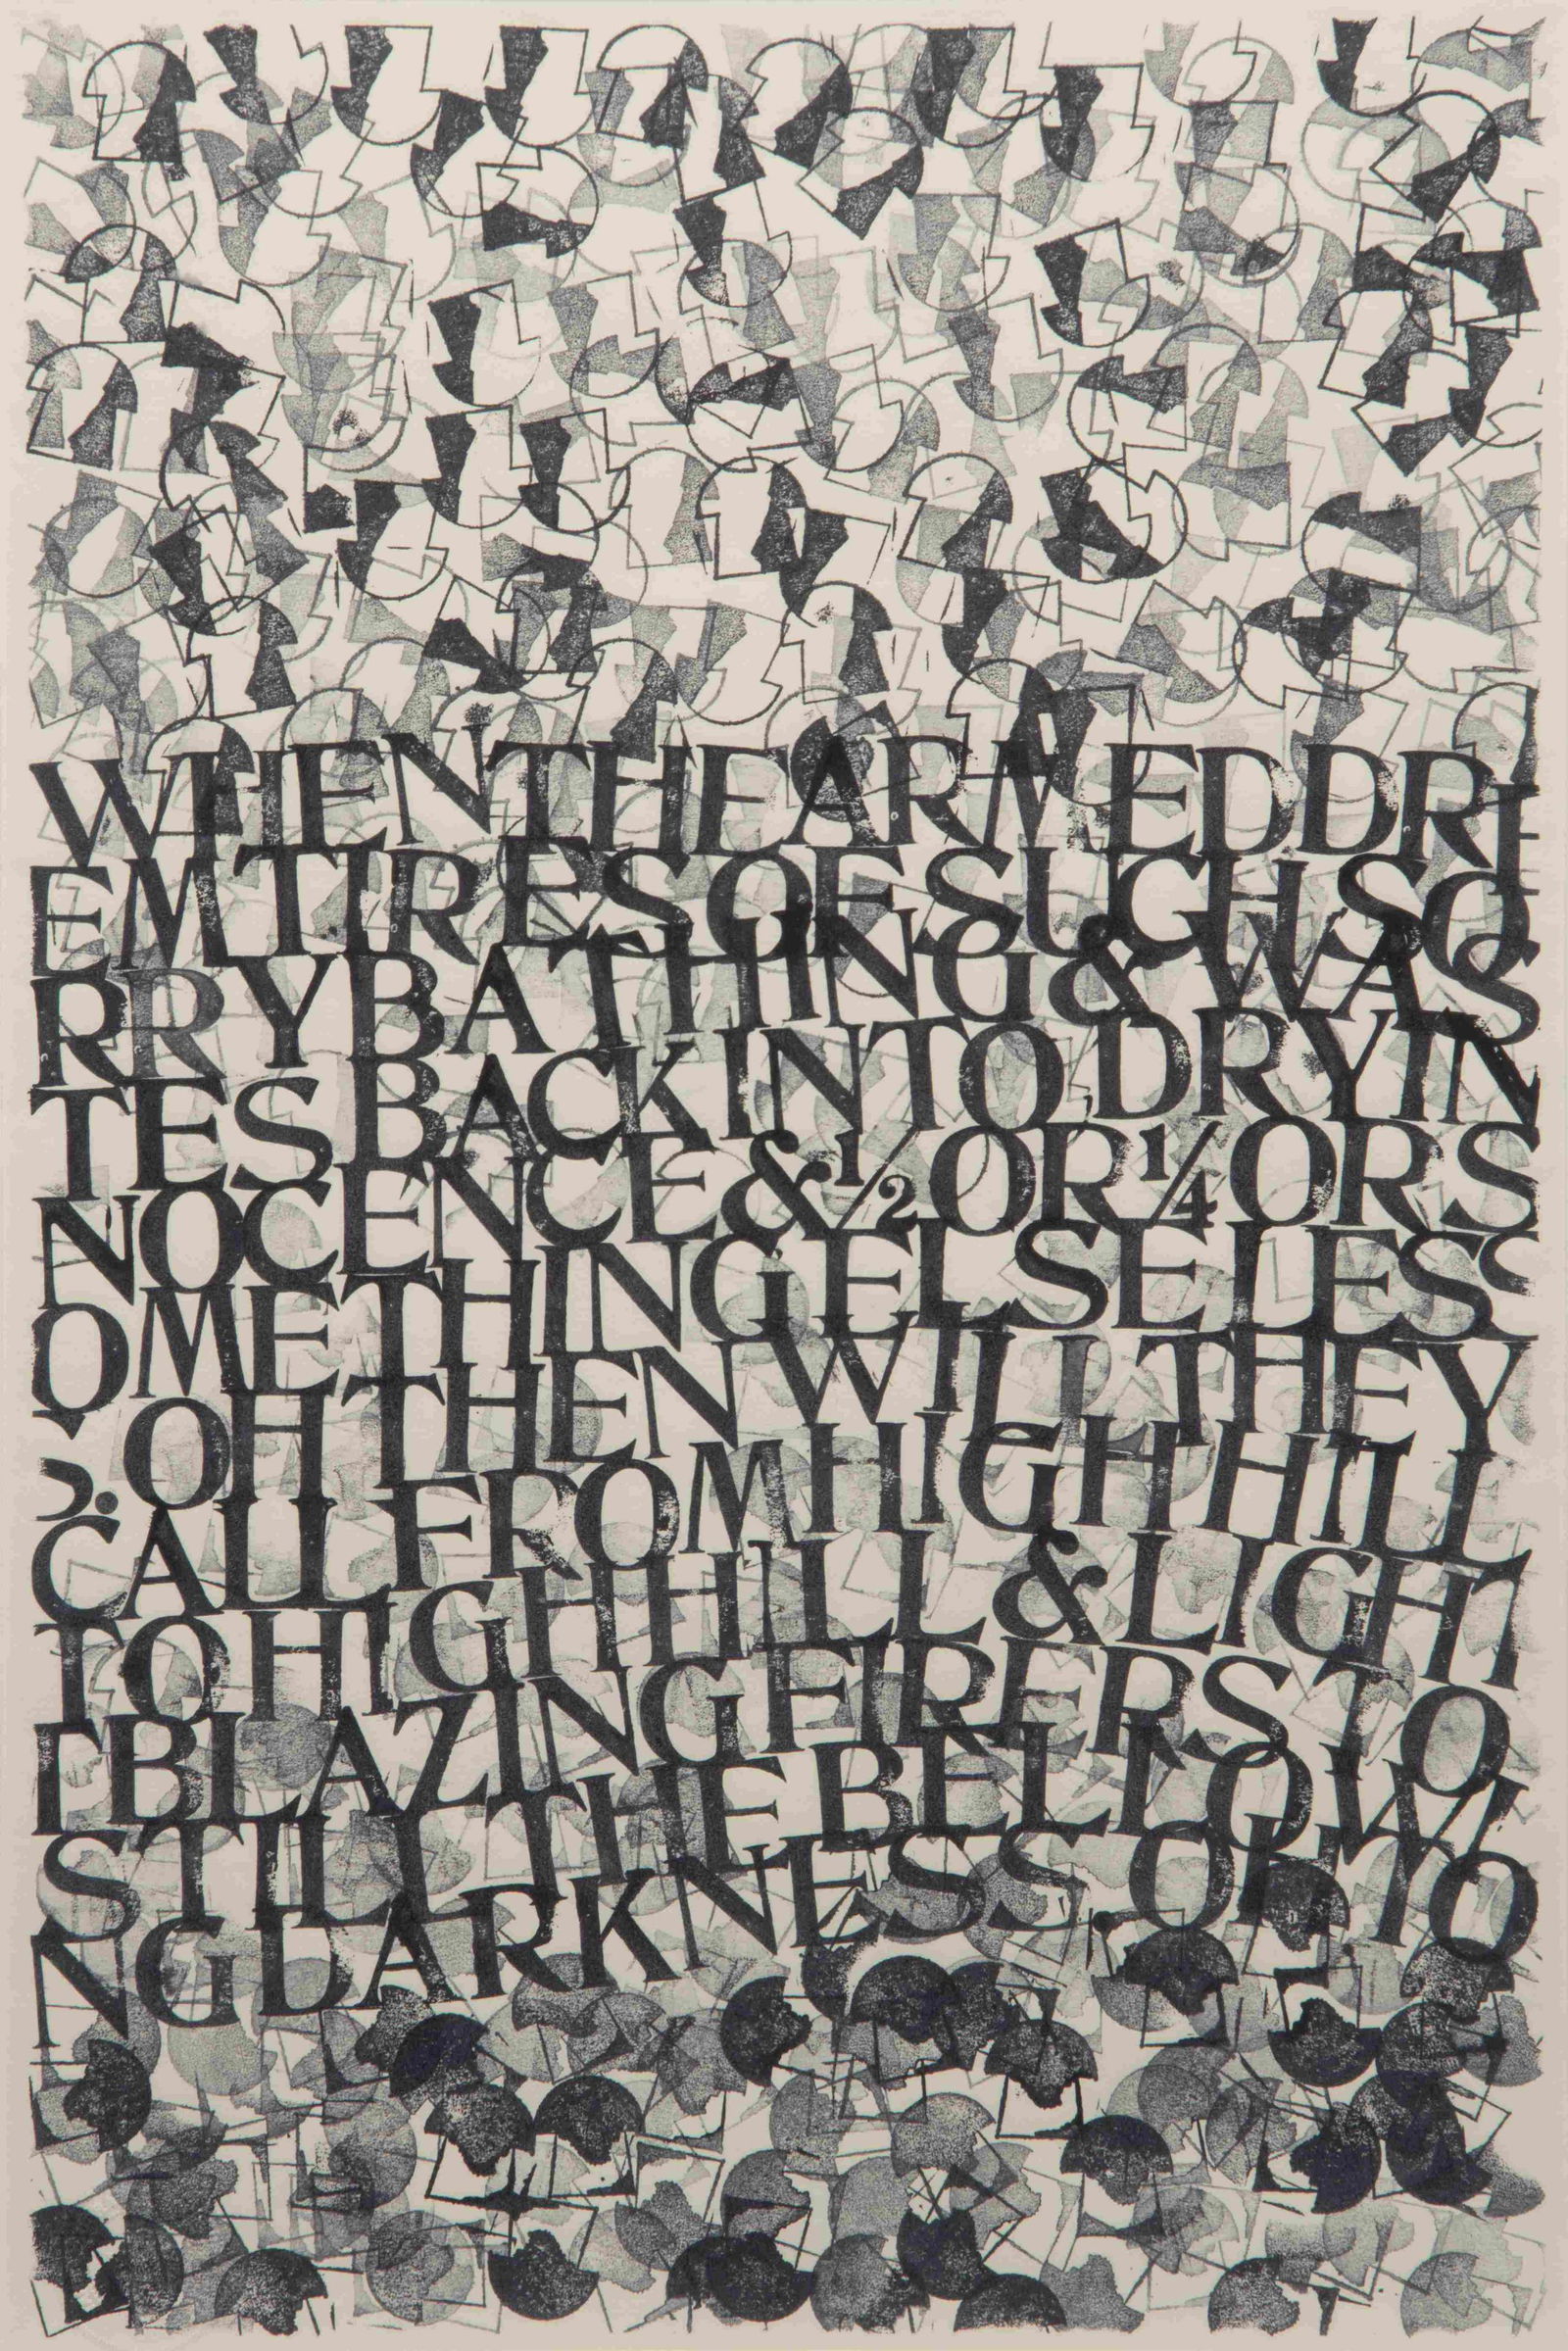 WHEN THE ARMED DRI
EM TIRES OF SUCH SO
RRY BATHING & WAS
TES BACK INTO DRY IN
NOCENCE & ½ OR ¼ OR S
OMETHING ELSE LESS
? OH THEN WILL THEY
CALL FROM HIGH HILL
TO HIGH HILL & LIGHT
BLAZING FIRERS TO
STILL THE BELLOWI
NG DARKNESS OH TO